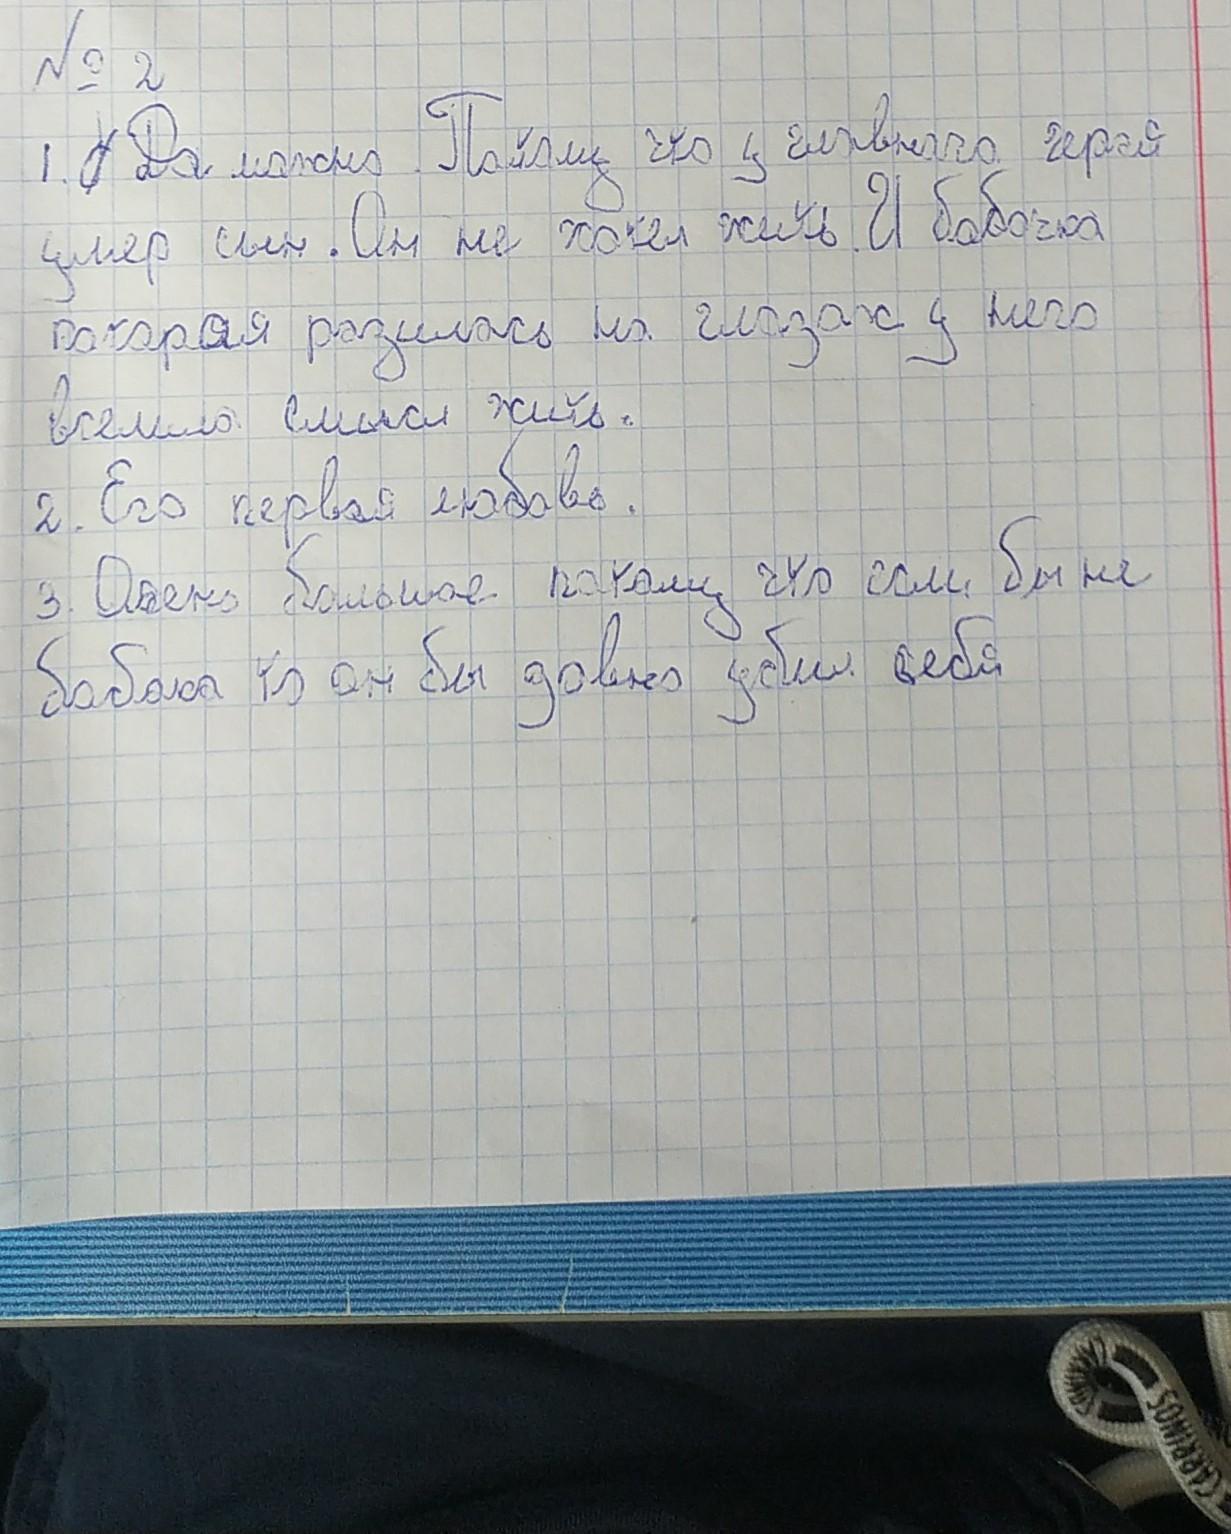 № 2
1. Да можно. Потому что у главного героя
умер сын. Он не хотел жить. И бабочка
которая родилась на глазах у него
вселила смысл жить.
2. Его первая любовь.
3. Очень большое потому что если бы не
бабочка то он бы давно убил себя
SCARRINOS